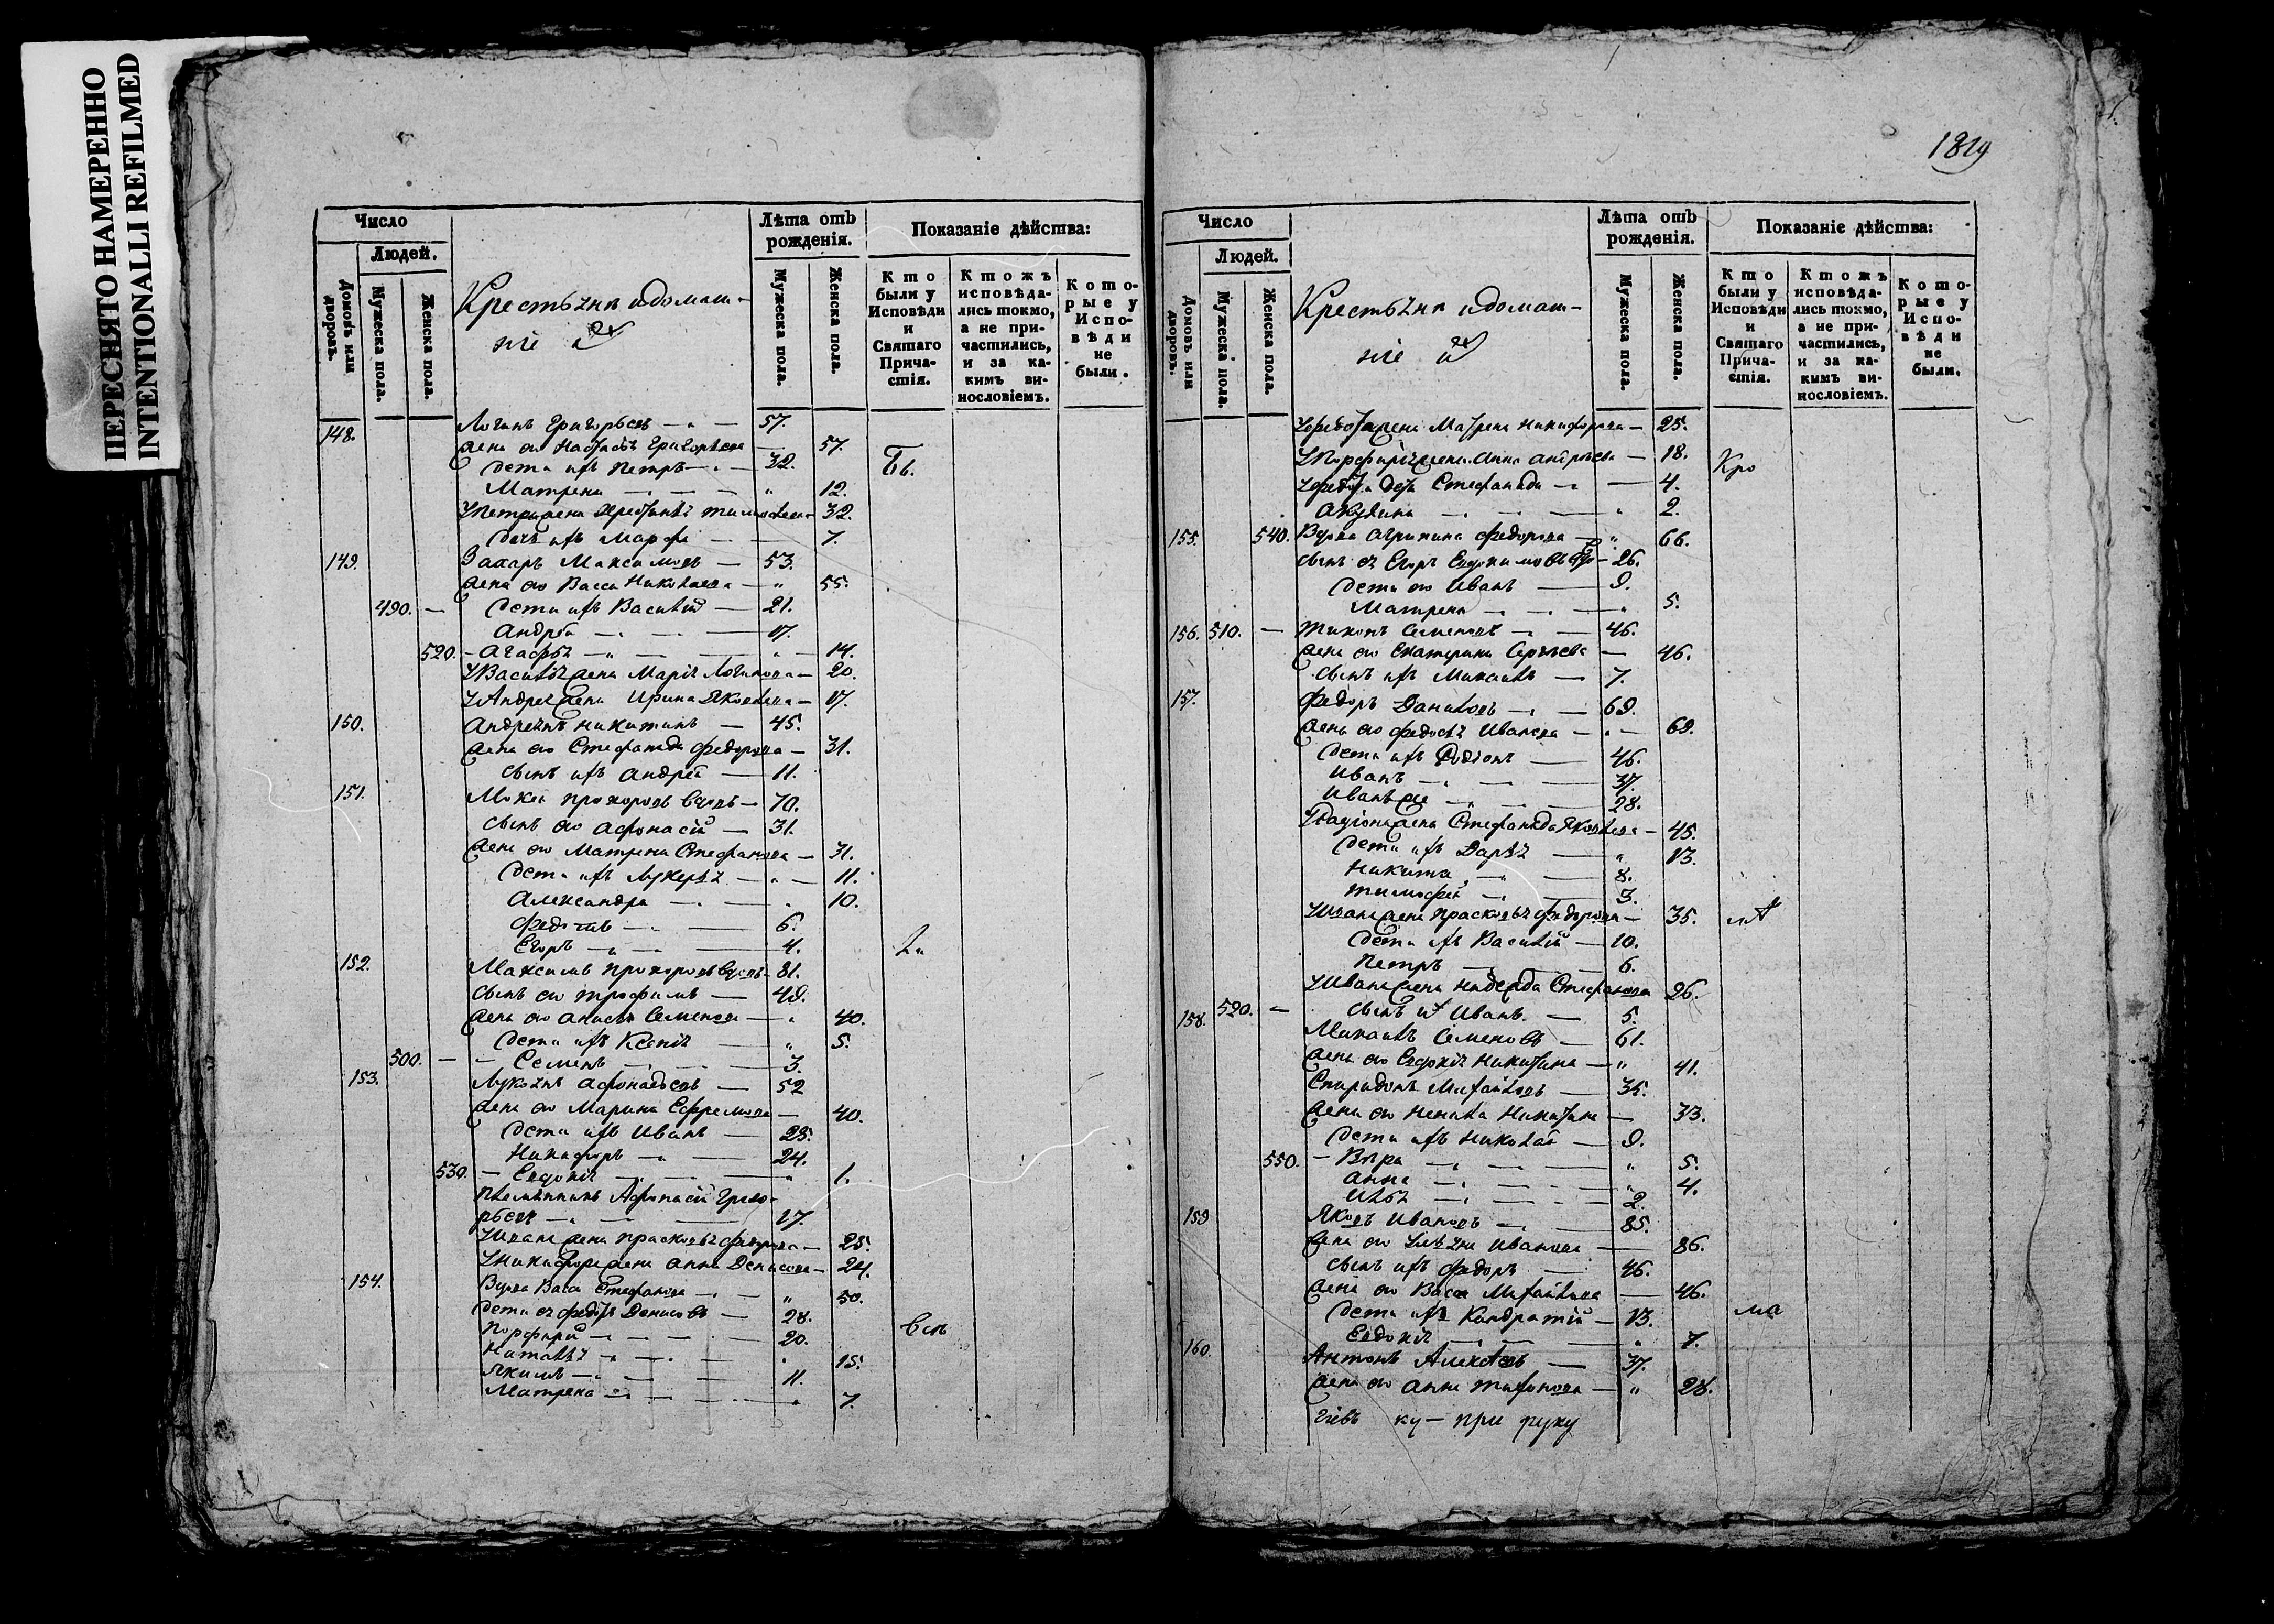 ПЕРЕСНЯТО НАМЕРЕННО
INTENTIONALLI REFILMED
Число
Людей.
Домовъ или дворовъ.
Мужеска пола.
Женска пола.
Крестьяня идомаш-
ніе
Лѣта отъ рожденія.
Мужеска пола.
Женска пола.
Показаніе дѣйства:
Кто были у Исповѣди и Святаго Причастія.
Ктожъ исповѣдались токмо, а не причастились, и за какимъ винословіемъ.
Которые у Исповѣди не были.
148. Логинъ Григорьевъ 57.
жена его Настасья Григорьева 57.
дети ихъ Петръ 32.
Матрена 12.
УПетра жена Тимофеева 32.
дочь ихъ Марфа 7.
149. Захаръ Максимовъ 53.
жена его Васса Николаева 55.
490. дети ихъ Василий 21.
Андрей 17.
520. Агафья 14.
УВасилья жена Марья Логинова 20.
УАндрея жена Ирина Яковлева 17.
150. Андреянъ Никитинъ 45.
жена его Стефанида Федорова 31.
сынъ ихъ Андрей 11.
151. Мокей Прохоровъ вдовъ 70.
сынъ его Афонасий 31.
жена его Матрена Стефанова 31.
дети ихъ Лукерья 11.
Александра 10.
Федотъ 6.
Егоръ 4.
152. Максимъ Прохоровъ вдовъ 81.
сынъ его Трофимъ 49.
жена его Анисья Семенова 40.
дети ихъ Ксения 5.
500. Семенъ 3.
153. Лукоянъ Афонасьевъ 52
жена его Марина Ефремова 40.
дети ихъ Иванъ 25.
Никифоръ 24.
530. Евдокия 1.
племянникъ Афонасий Григо-
рьевъ 17.
УИвана жена Прасковья Федорова 25.
УНикифора жена Анна Денисова 24.
154. Вдова Васса Стефанова 50.
дети ея Федотъ Денисовъ 28.
Порфирий 20.
Наталья 15.
Якимъ 11.
Матрена 7.
Бы.
ли
всѣ
1819
Число
Людей.
Домовъ или дворовъ.
Мужеска пола.
Женска пола.
Крестьяня идомаш-
ніе
Лѣта отъ рожденія.
Мужеска пола.
Женска пола.
Показаніе дѣйства:
Кто были у Исповѣди и Святаго Причастія.
Ктожъ исповѣдались токмо, а не причастились, и за какимъ винословіемъ.
Которые у Исповѣди не были.
УФедота жена Матрена Никифорова 25.
УПорфирья жена Анна Андреева 18.
УФедота дети Стефанида 4.
Акулина 2.
155. 540. Вдова Агрипина Федорова 66.
сынъ ея Егоръ Евдокимовъ 26.
дети его Иванъ 9.
Матрена 5.
156. 510. Тихонъ Семеновъ 46.
жена его Екатерина Сергѣева 46.
сынъ ихъ Михаилъ 7.
157. Федоръ Даниловъ 69.
жена его Федосья Иванова 69.
дети ихъ Родионъ 46.
Иванъ 37.
Иванъ же 28.
УРодиона жена Стефанида Яковлева 45.
дети ихъ Дарья 13.
Никита 8.
Тимофей 3.
УИвана жена Прасковья Федорова 35.
дети ихъ Василий 10.
Петръ 6.
УИвана жена Надежда Стефанова 26.
520. сынъ их Иванъ 5.
158. Михаилъ Семеновъ 61.
жена его Евдокия Никитина 41.
Спиридонъ Михайловъ 35.
жена его Ненила Никитина 33.
дети ихъ Николай 9.
550. Вѣра 5.
Анна 4.
Илья 2.
159 Яковъ Ивановъ 85.
жена его Ульяна Иванова 86.
сынъ ихъ Федоръ 46.
жена его Васса Михайлова 46.
дети ихъ Кондратий 13.
Евдокия 7.
160. Антонъ Алексеевъ 37.
жена его Анна Тихонова 28.
Кро
мѣ
ма
гіевъ ку - при руку